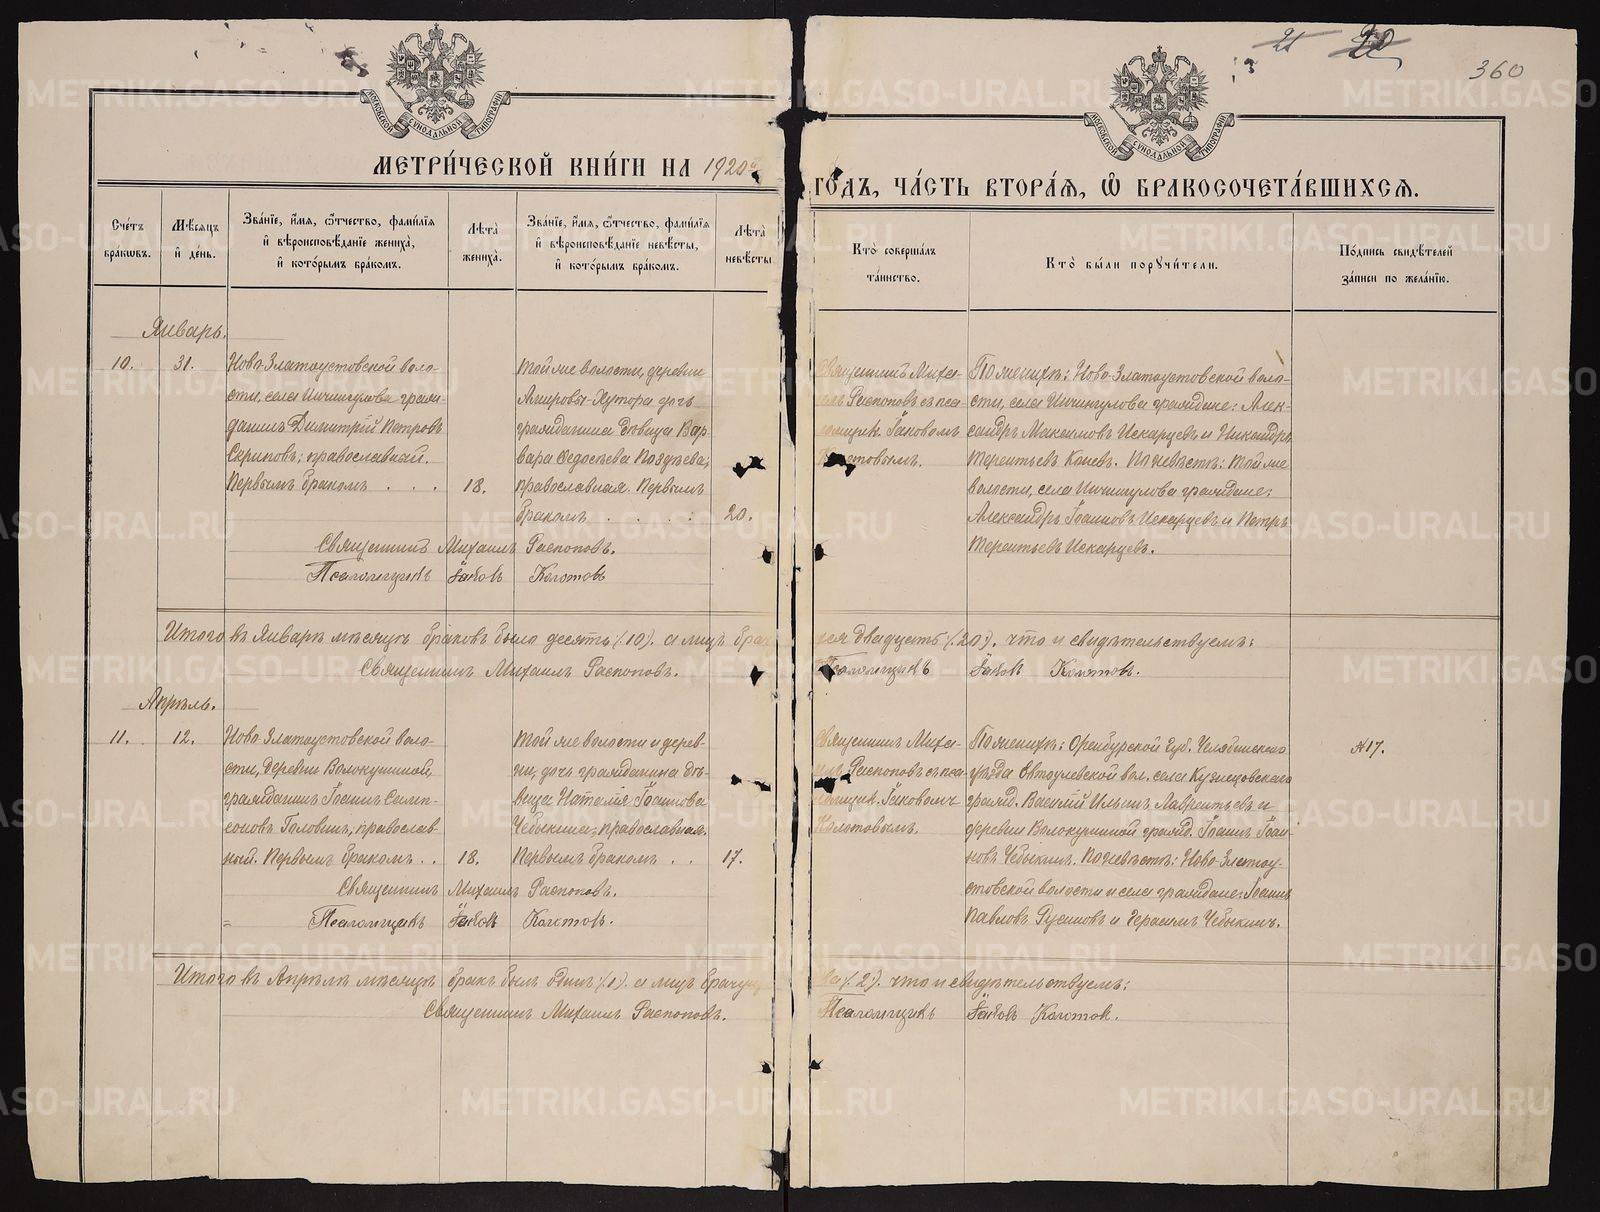 21 20
360
МОСКОВСКОЙ СѴНОДАЛЬНОЙ ТИПОГРАФІИ
МОСКОВСКОЙ СѴНОДАЛЬНОЙ ТИПОГРАФІИ
МЕТРИ́ЧЕСКОЙ КНИ́ГИ НА 1920
ГОДЪ, ЧА́СТЬ ВТОРА́Ѧ, Ѽ БРАКОСОЧЕТА́ВШИХСѦ.
Счетъ бракѡвъ.
Мѣсѧцъ и҆ день.
Зва́нїе, и҆́мѧ, ѻ҆́тчество, фами́лїѧ и҆ вѣроисповѣ́данїе жениха̀, и҆ кото́рымъ бра́комъ.
Лѣ́та жениха̀.
Зва́нїе, и҆́мѧ, ѻ҆́тчество, фами́лїѧ и҆ вѣроисповѣ́данїе невѣ́сты, и҆ кото́рымъ бра́комъ.
Лѣ́та невѣ́сты
Кто̀ соверша́лъ та́инство.
Кто̀ бы́ли порꙋчи́тели.
По́дпись свидѣ́телей за́писи по жела́нїю.
Январь.
10. 31.
Ново-Златоустовской воло-
сти, села Ичингулова граж-
данинъ Димитрій Петровъ
Скриповъ; православный.
Первымъ бракомъ . . . 18.
Той же волости, деревни
Хутора дочь
гражданина дѣвица Вар-
вара Ѳедосѣева Поздѣева;
православная. Первымъ
бракомъ . . . . 20.
Священникъ Миха-
илъ Распоповъ съ пса-
ломщик. Іаковомъ
Поженихѣ: Ново-Златоустовской воло-
сти, села Ичингулова граждане: Алек-
сандръ Максимовъ Искарцевъ и Никандръ
Терентьевъ Коневъ. По невѣстѣ: той же
волости, села Ичингулова граждане:
Александръ Іоанновъ Искарцевъ и Петръ
Терентьевъ Искарцевъ.
Священникъ Михаилъ Распоповъ.
Псаломщикъ Іаковъ Колотовъ
Итого въ Январѣ мѣсяцѣ браковъ было десять /10/. а лицъ брач
ся двадцать /20/. что и свидѣтельствуемъ:
Священникъ Михаилъ Распоповъ.
Псаломщикъ Іаковъ Колотовъ.
Апрѣль.
11. 12.
Ново Златоустовской воло-
сти, деревни Волокушиной,
гражданинъ Іоаннъ Симе-
оновъ Головинъ, православ-
ный. Первымъ бракомъ . . 18.
той же волости и дерев-
ни, дочь гражданина дѣ-
вица Наталія Іоаннова
Чебыкина; православная.
Первымъ бракомъ . . 17.
Священникъ Миха-
илъ Распоповъ съ пса-
ломщик. Іаковомъ
Колотовымъ.
Поженихѣ: Оренбурской Губ. Челябинскаго
уѣзда вол. села Кузнецовскаго
гражд. Василій Ильинъ Лаврентьевъ и
деревни Волокушиной гражд. Іоаннъ Іоан-
новъ Чебыкинъ. По невѣстѣ: Ново-Злтоу-
стовской волости и села граждане: Іоаннъ
Павловъ Русиновъ и Герасимъ Чебыкинъ.
№17.
Священникъ Михаилъ Распоповъ.
Псаломщикъ Іаковъ Колотовъ.
Итого въ Апрѣлѣ мѣсяцѣ бракъ былъ одинъ /1/. а лицъ брачу
/2/. что и свидѣтельствуемъ:
Священникъ Михаилъ Распоповъ.
Псаломщикъ Іаковъ Колотов.
METRIKI.GASO-URAL.RU